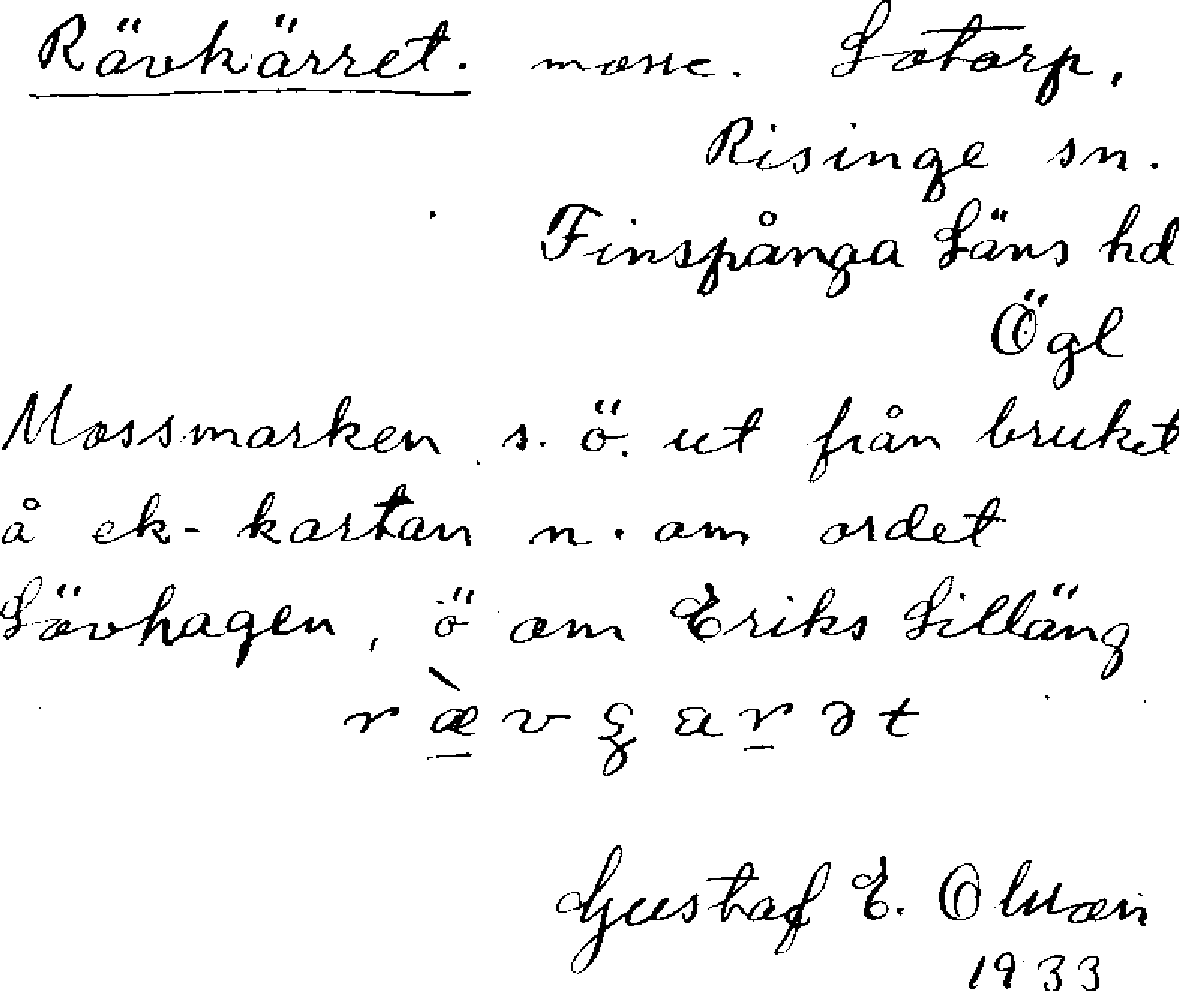 Rävkärret. mosse. Lotorp,
Risinge sn.
Finspånga Läns hd
Ögl
Mossmarken s. ö. ut från bruket
å ek-kartan n. om ordet
Lövhagen, ö om Eriks Lilläng
Gustaf E. Olsson
1933